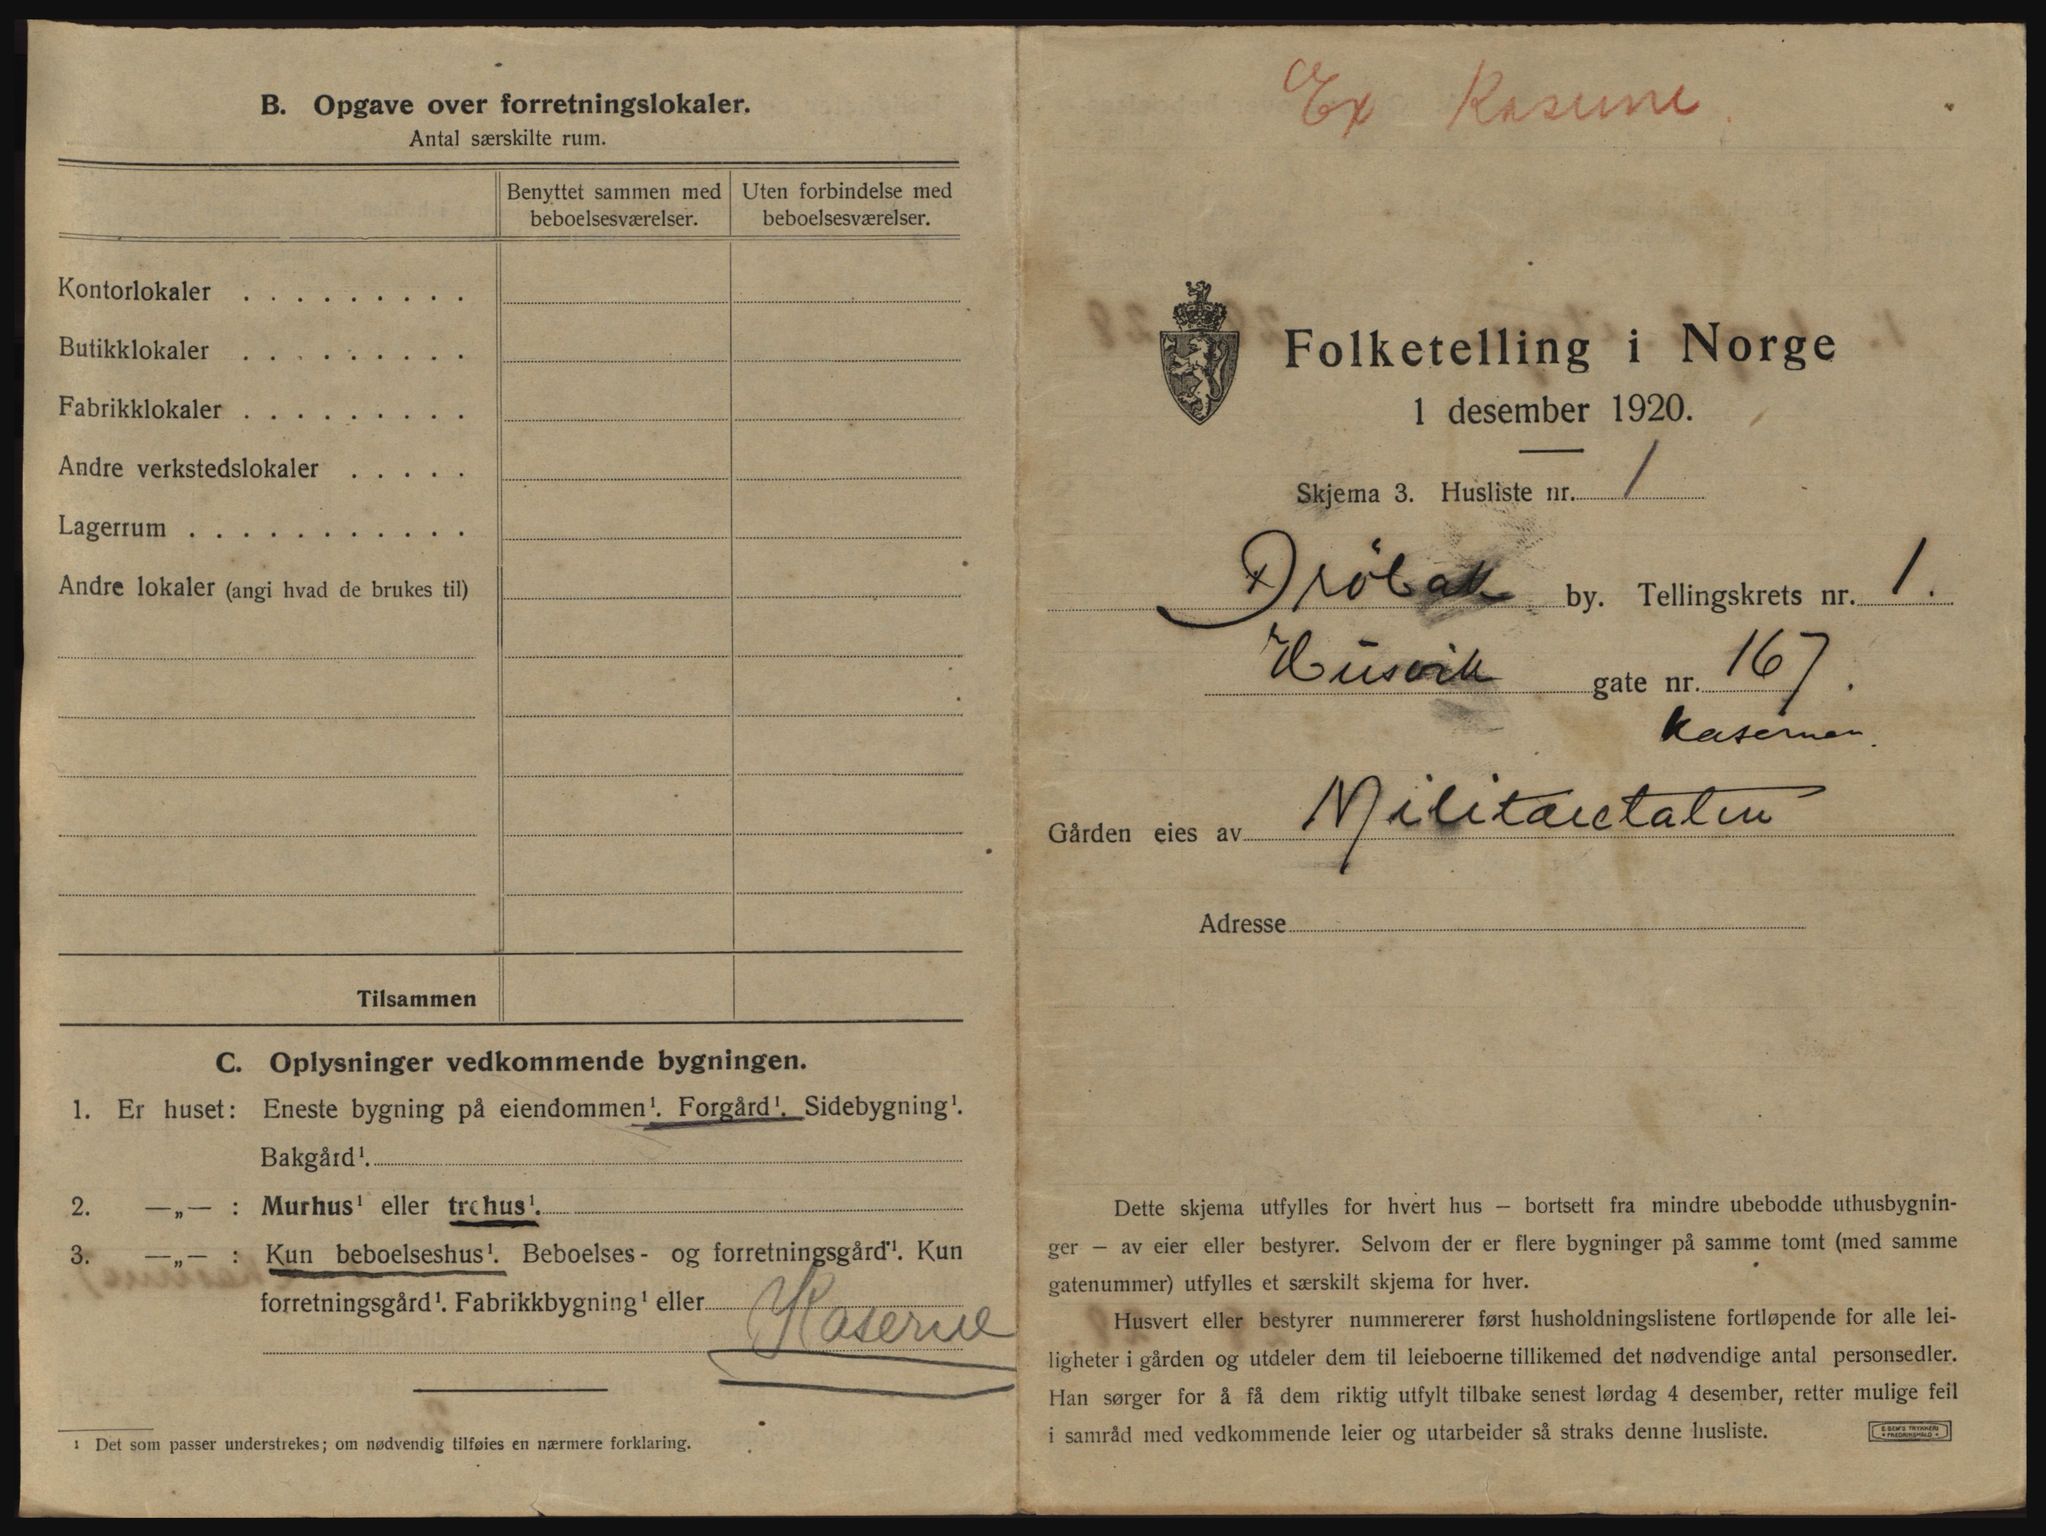 B. Opgave over forretningslokaler.
Antal særskilte rum.
Benyttet sammen med beboelsesværelser.
Uten forbindelse med beboelsesværelser.
Kontorlokaler
Butikklokaler
Fabrikklokaler
Andre verkstedslokaler
Lagerrum
Andre lokaler (angi hvad de brukes til)
Tilsammen
C. Oplysninger vedkommende bygningen.
1. Er huset: Eneste bygning på eiendommen¹. Forgård¹. Sidebygning¹.
Bakgård¹.
2. —„— : Murhus¹ eller trehus¹.
3. —„— : Kun beboelseshus¹. Beboelses- og forretningsgård¹. Kun
forretningsgård¹. Fabrikkbygning¹ eller
Kaserne
¹ Det som passer understrekes; om nødvendig tilføies en nærmere forklaring.
Ex Kaserne.
Folketelling i Norge
1 desember 1920.
Skjema 3. Husliste nr. 1
Dröbak by. Tellingskrets nr. 1.
Husvik gate nr. 167.
Kasernen.
Gården eies av Militæretaten
Adresse
Dette skjema utfylles for hvert hus – bortsett fra mindre ubebodde uthusbygnin-
ger – av eier eller bestyrer. Selvom der er flere bygninger på samme tomt (med samme
gatenummer) utfylles et særskilt skjema for hver.
Husvert eller bestyrer nummererer først husholdningslistene fortløpende for alle lei-
ligheter i gården og utdeler dem til leieboerne tillikemed det nødvendige antal personsedler.
Han sørger for å få dem riktig utfylt tilbake senest lørdag 4 desember, retter mulige feil
i samråd med vedkommende leier og utarbeider så straks denne husliste.